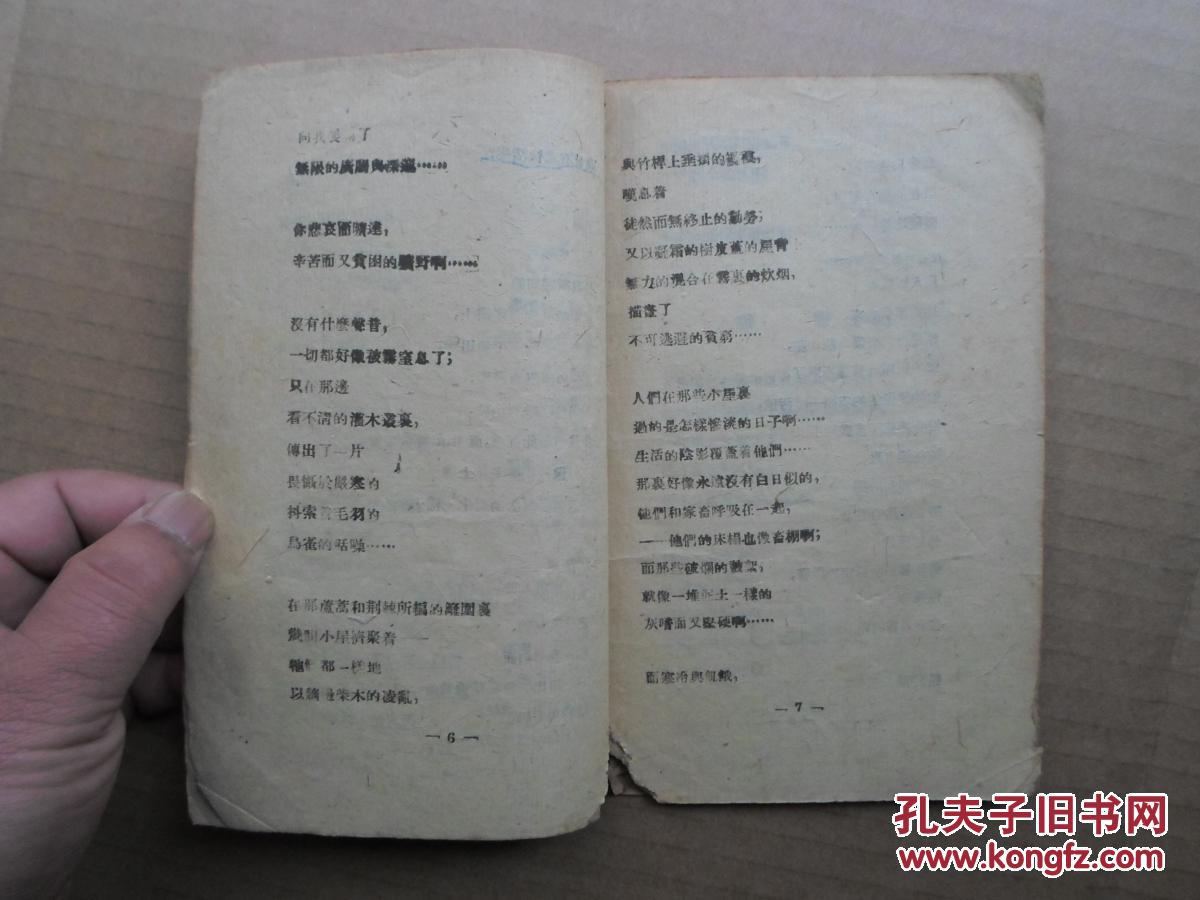 向我
了
無限的廣闊與深邃……
你悲哀而曠達，
辛苦而又貧困的曠野啊……
沒有什麼聲音，
一切都好像被霧窒息了；
只在那邊
看不清的灌木叢裏，
傳出了一片
畏懾於嚴寒的
抖索着毛羽的
鳥雀的聒噪……
在那蘆蒿和荆棘所編的籬圍裏
幾間小屋擠聚着——
牠們都一樣地
以牆邊柴木的凌亂，
— 6 —
與竹桿上垂掛的襤褸，
嘆息着
徒然而無終止的勤勞；
又以凝霜的樹皮蓋的屋背
無力的混合在霧裏的炊烟，
描畫了
不可逃避的貧窮……
人們在那些小屋裏
過的是怎樣慘淡的日子啊……
生活的陰影覆蓋着他們……
那裏好像永遠沒有白日似的，
他們和家畜呼吸在一起，
——他們的床榻也像畜棚啊；
而那些破爛的被絮，
就像一堆泥土一樣的
灰暗而又堅硬啊……
而寒冷與飢餓，
— 7 —
孔夫子旧书网
www.kongfz.com